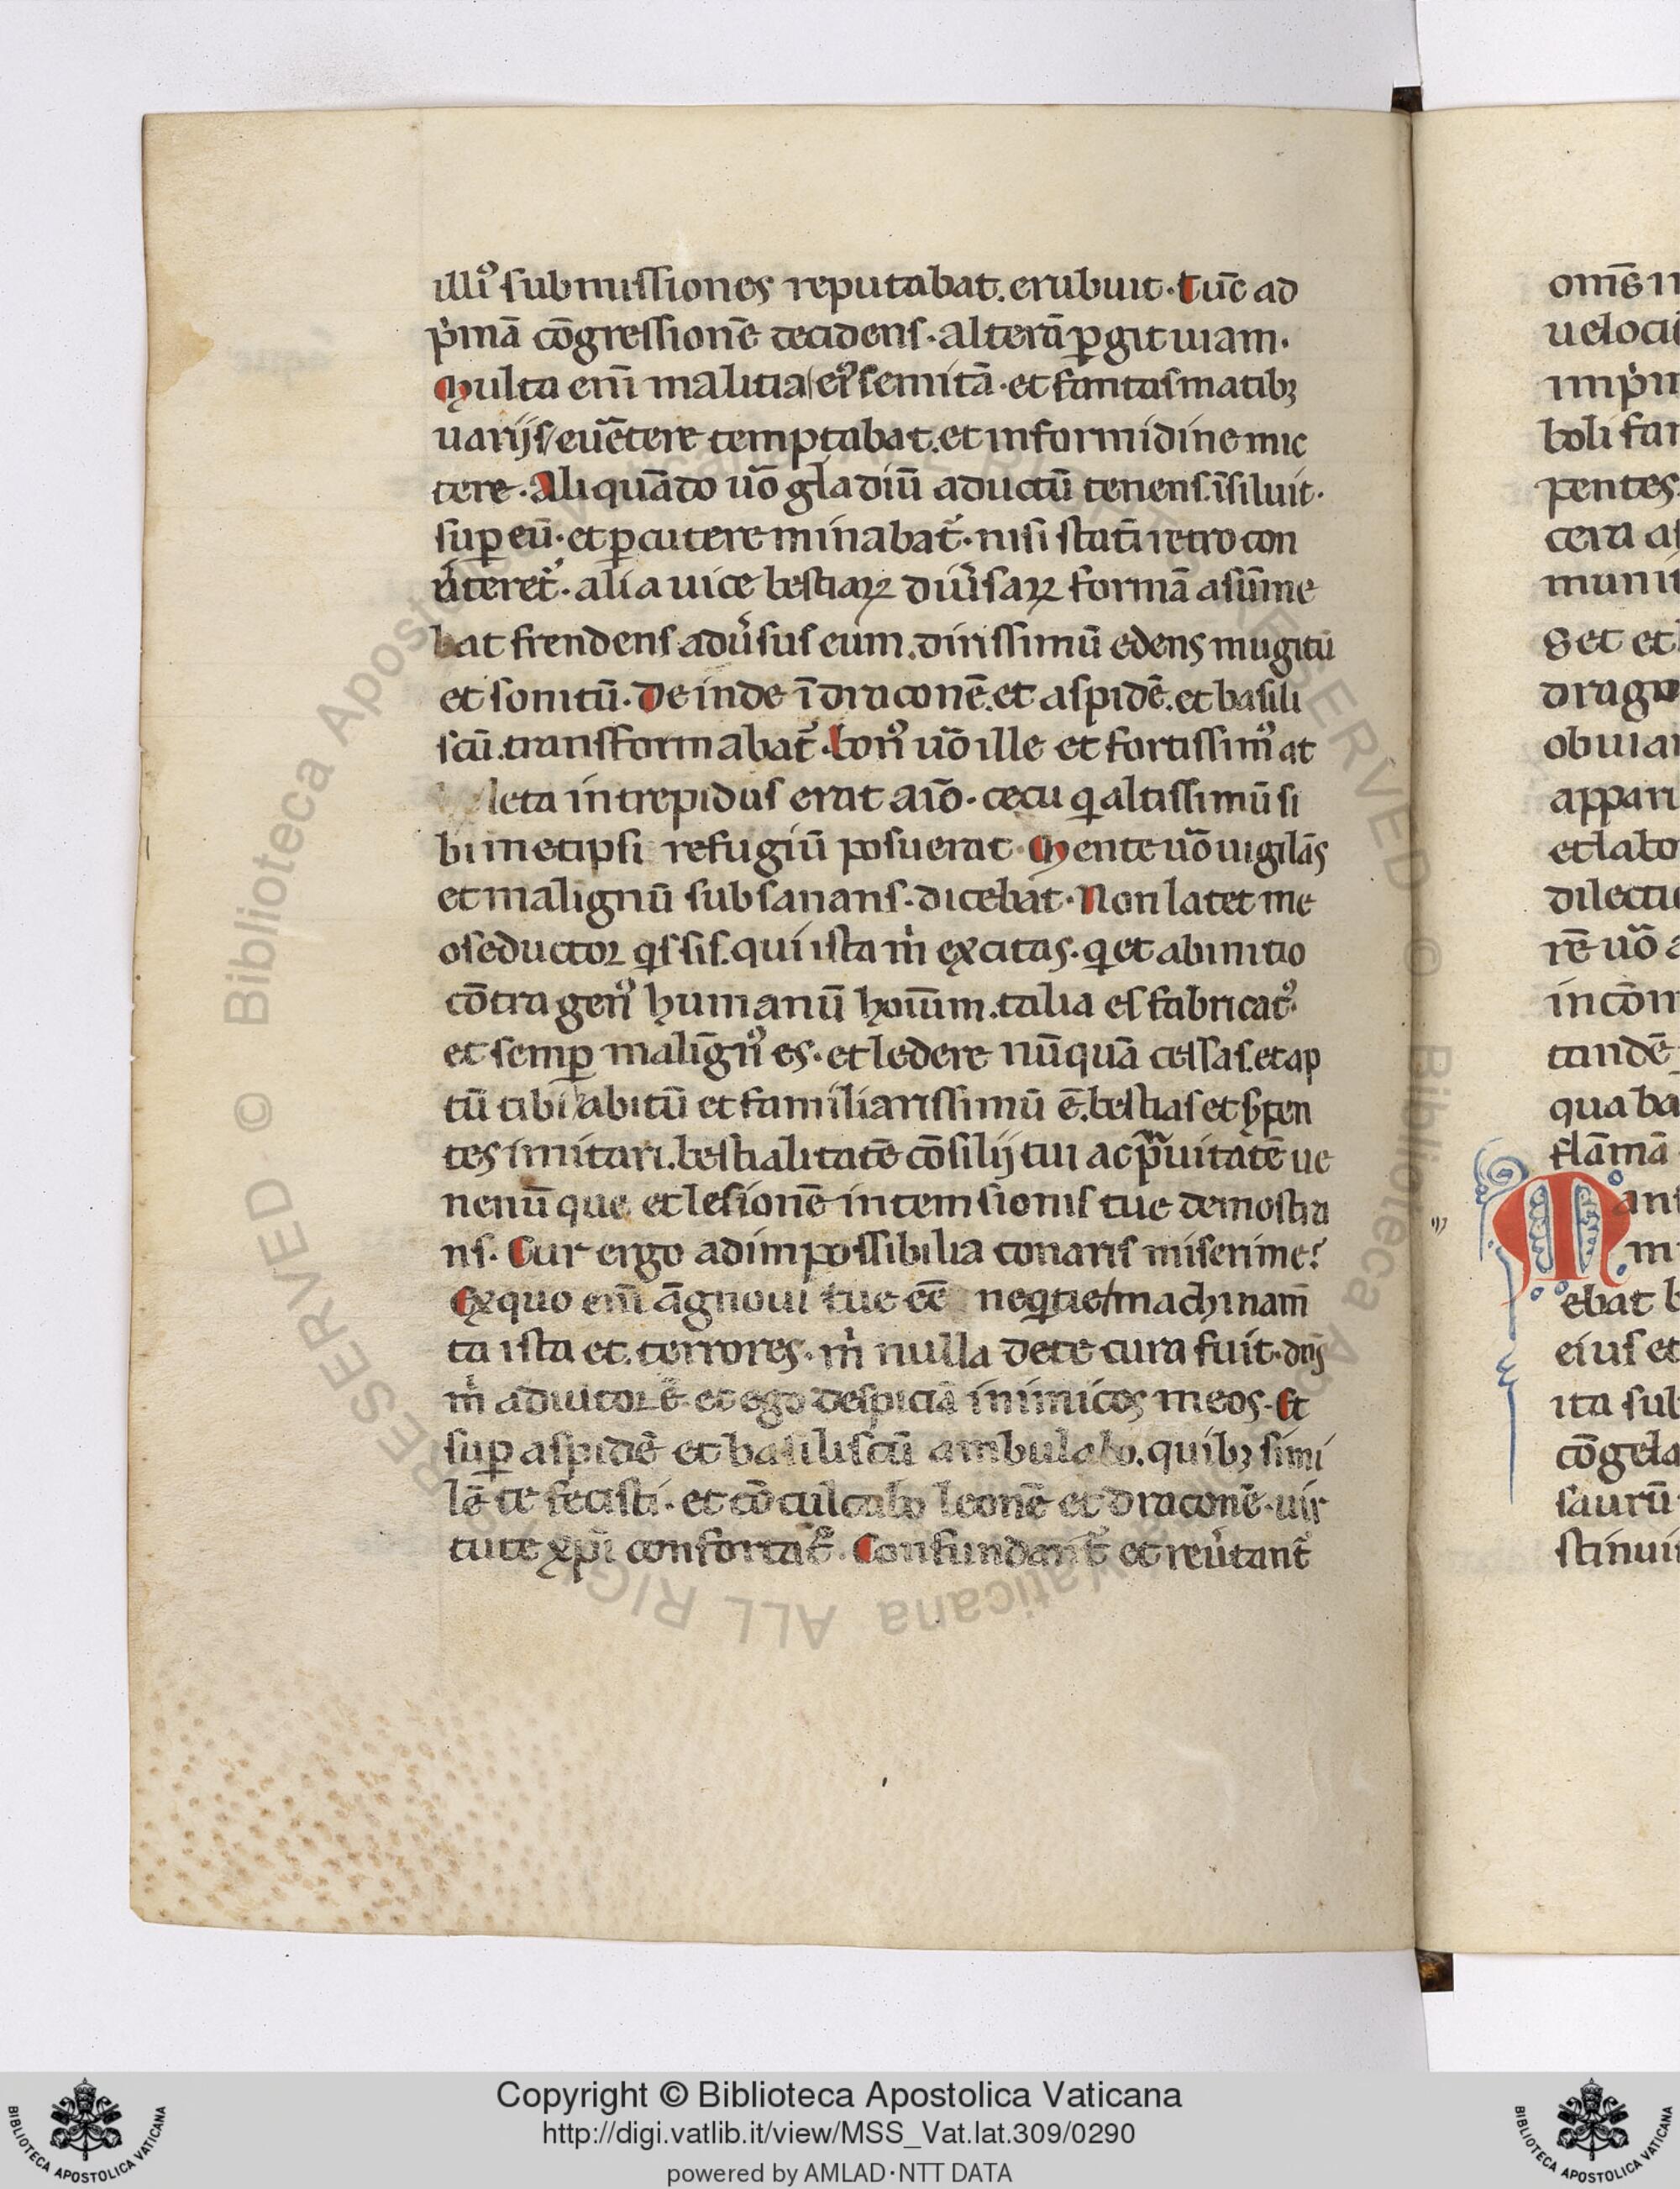 illiꝰ submissiones reputabat. erubuit. Tūc ad
p̓mā cōgressionē decidens. alterā ꝑgit uiam.
Multa eni̅ malitia eiꝰ semitā. et fantasmatibꝫ
uarijs euētere temptabat. et in formidine mic
tere. Aliquādo uō gladiū aductū tenens. īsiluit.
suꝑ eū. et ꝑcutere minabat᷑. nisi statī retro con
u̓teret᷑. alia uice bestiaꝝ diu̓saꝝ formā asūme
bat frendens adu̓sus eum. dirissimū edens mugitū
et sonitū. Deinde ī draconē. et aspidē. et basili
scū. transformabat᷑. bonꝰ uō ille et fortissimꝰ at
leta intrepidus erat aīo. cecu q altissimū si
bimetipsi refugiū posuerat. Mente uō uigilās
et malignū subsanans. dicebat. Non latet me
o seductor qis sis. qui ista m̓ excitas. q et ab initio
cōtra genꝰ humanū hoīum. talia es fabricatꝰ.
et semꝑ malīgnꝰ es. et ledere nūquā cessas. et ap
tū tibi abitū et familiarissimū ē. bestias et s̓pen
tes imitari. bestialitatē cōsilij tui ac prauitatē ue
nenūque et lesionē intemsionis tue demostra
ns. Cur ergo ad impossibilia conaris miserime?
Ex quo eni̅ āgnoui tue eē neqtie machinam̄
ta ista et terrores. m̓ nulla de te cura fuit. dn̄s
m̓ adiutor ē. et ego despiciā inimicos meos. Et
suꝑ aspidē et basiliscū ambulabo. quibꝫ simi
lē te fecisti. et cōculcabo leonē et draconē. uir
tute xp̄i confortatꝰ. Confundant᷑ et reu̓tant᷑
om̄s i
ueloci
imp̓
boli fan
pentes
cera a
muni
Set et
drago
obuia
appari
et labo
dilectu
rē uō a
incōm
tandē
qua ba
flāmā
Man
m
ebat b
eius et
ita sub
cōgela
saurū
stinui
© Biblioteca Apostolica Vaticana ALL RIGHTS RESERVED
Copyright © Biblioteca Apostolica Vaticana
http://digi.vatlib.it/view/MSS_Vat.lat.309/0290
powered by AMLAD·NTT DATA
BIBLIOTECA APOSTOLICA VATICANA
BIBLIOTECA APOSTOLICA VATICANA